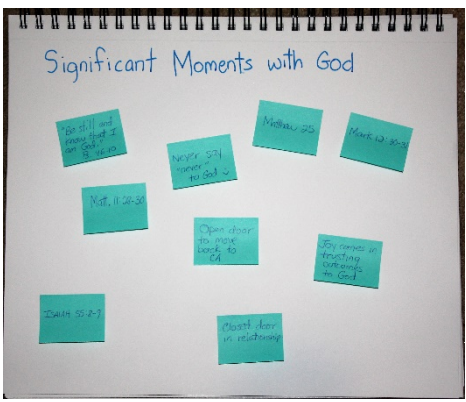 Significant Moments with God
"Be still and
know that I
am God."
Ps. 46:10
Never say
"never"
to God
Matthew 25
Mark 12:30-31
Matt. 11:28-30
Open door
to move
back to
CA
Joy comes in
trusting
outcomes
to God
ISAIAH 55:2-7
Closed door
in relationship